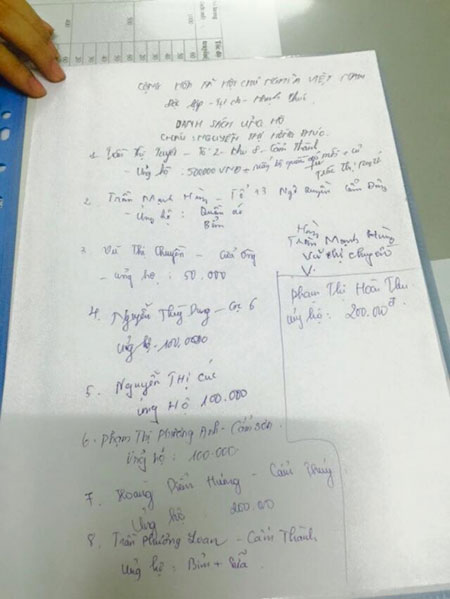 CỘNG HÒA XÃ HỘI CHỦ NGHĨA VIỆT NAM
Độc lập - Tự do - Hạnh Phúc
DANH SÁCH ỦNG HỘ
CHÁU: NGUYỄN THỊ HỒNG
1. Thị Tuyết - Tổ 2 - Khu 8 - Cẩm Thành
- Ủng hộ : 500000 VNĐ + bộ quần áo mới + cũ
2. Trần Mạnh Hùng - Tổ 93 Ngô Quyền Cẩm Đông
- Ủng hộ : Quần áo
Bỉm
3. Vũ Thị Chuyên - Cửa Ông
- ủng hộ : 50.000
4. Nguyễn Thùy Dung - Cọc 6
ủng hộ : 100.000
5. Nguyễn Thị Cúc
ủng Hộ 100.000
6. Phạm Thị Phương Anh - Cẩm Sơn
Ủng hộ : 100.000
7. Hoàng Diễm Hương - Cẩm Thủy
Ủng hộ : 200.00
8. Trần Phương Loan - Cẩm Thành
Ủng hộ : Bỉm + Sữa
Trần Mạnh Hùng
Vũ Thị Chuyên
Phạm Thị Hoài Thu
ủng hộ : 200.00đ